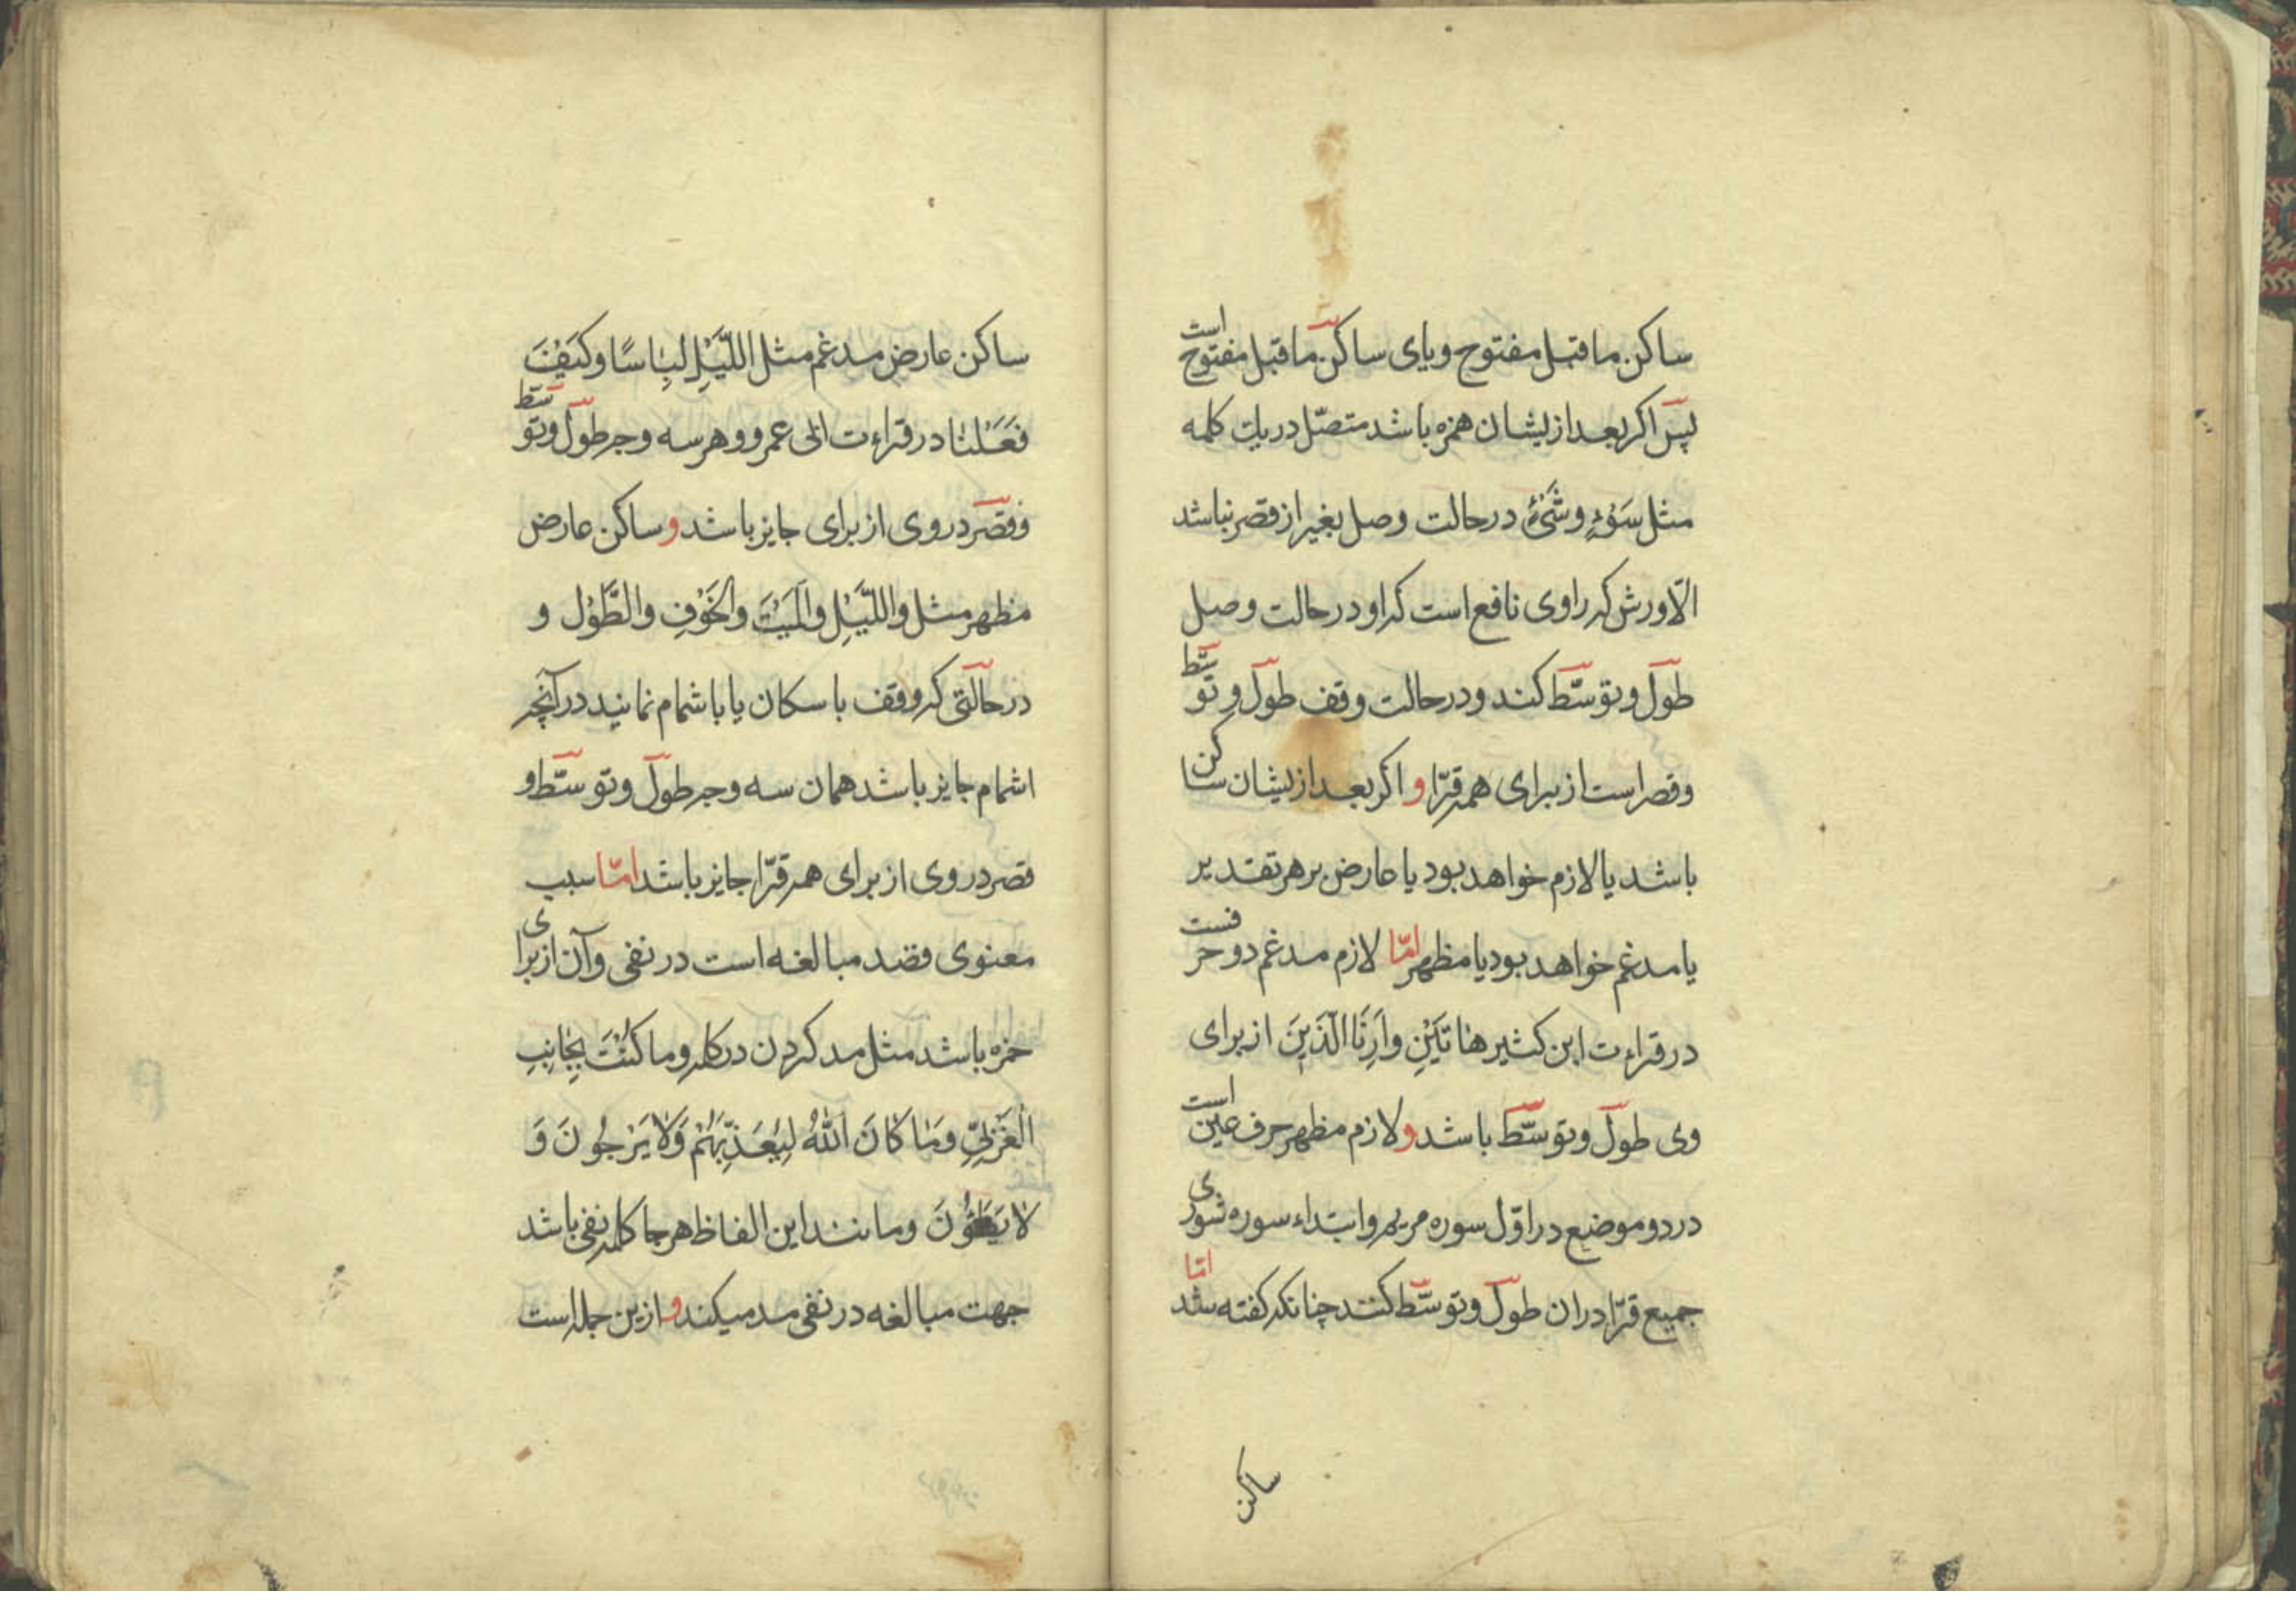 ساکن ماقبل مفتوح ویای ساکن ماقبل مفتوح است
پس اکر بعد ازیشان همزه باشد متصّل دریك کلمه
مثل سَوْءٍ وشَیْءٍ درحالت وصل بغیر از قصر نباشد
الّا ورش که راوی نافع است که او درحالت وصل
طول وتوسّط کند ودرحالت وقف طول وتوسّط
وقصر است از برای همه قرّا و اکر بعد ازیشان ساکن
باشد یا لازم خواهد بود یا عارض بر هر تقدیر
یا مدغم خواهد بود یا مظهر امّا لازم مدغم دو حرفست
درقراءت ابن کثیر هٰاتَیْنِ وأَرِنَا الّذَیْنَ از برای
وی طول وتوسّط باشد و لازم مظهر حرف عین است
در دو موضع در اوّل سوره مریم وابتداء سوره شوری
جمیع قرّا دران طول وتوسّط کنند چنانکه کفته شد امّا
ساکن
ساکن عارض مدغم مثل اللَّیْلِ لبِٰاسًا وکَیْفَ
فَعَلْنٰا درقراءت ابی عمرو وهر سه وجه طول وتوسّط
وقصر دروی از برای جایز باشد و ساکن عارض
مظهر مثل واللَّیْلِ والمَیْتَ والخَوْفِ والطَّوْل و
درحالتی که وقف باسکان یا باشمام نمایند درآنچه
اشمام جایز باشد همان سه وجه طول وتوسّط و
قصر دروی از برای همه قرّا جایز باشد امّا سبب
معنوی قصد مبالغه است در نفی وآن از برای
حمزه باشد مثل مد کردن درکلمه وما کُنْتَ بِجٰانِبِ
الْغَرْبِيِّ وَمٰا کٰانَ اللّٰهُ لِیُعَذِّبَهُمْ وَلٰا یَرْجُونَ وَ
لٰا یَطَؤُنَ ومانند این الفاظ هرجا کلمه نفی باشد
جهت مبالغه در نفی مد میکند و ازین جمله است